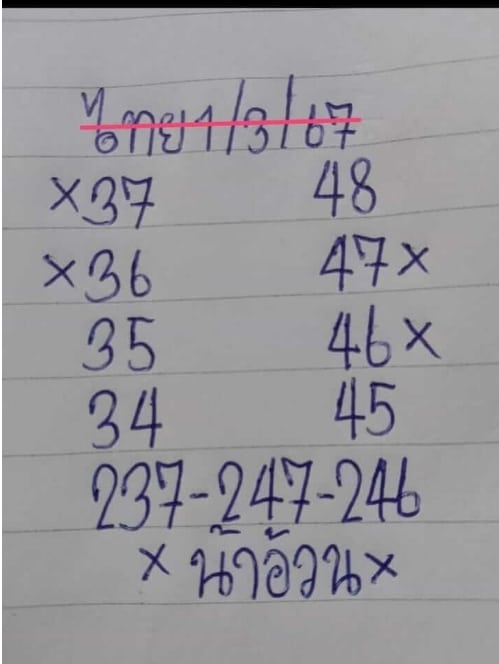 ไทย1/3/67
×37 48
×36 47×
35 46×
34 45
237-247-246
× น้าอ้วน×